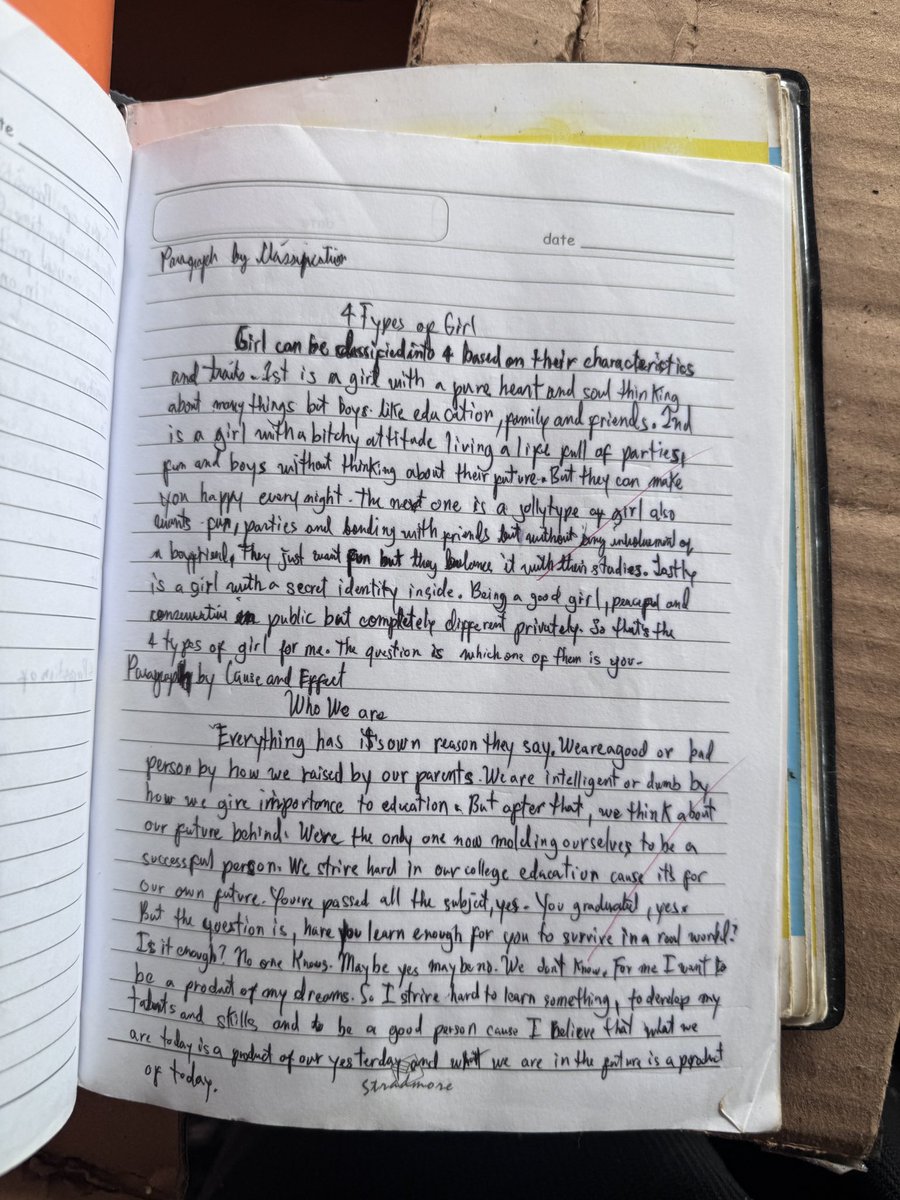 date
Paragraph by Classification
4 Types of Girl
Girl can be classified into 4 based on their characteristics
and traits. 1st is a girl with a pure heart and soul thinking
about many things but boys. Like education, family and friends. 2nd
is a girl with a bitchy attitude living a life full of parties,
fun and boys without thinking about their future. But they can make
you happy every night. The next one is a jolly type of girl also
wants fun, parties and bonding with friends but without being of
a boyfriend, They just want fun but they balance it with their studies. Lastly
is a girl with a secret identity inside. Being a good girl, peaceful and
conservative in public but completely different privately. So that's the
4 types of girl for me. The question is which one of them is you.
Paragraph by Cause and Effect
Who We are
Everything has it's own reason they say. We are a good or bad
person by how we raised by our parents. We are intelligent or dumb by
how we give importance to education. But after that, we think about
our future behind. We're the only one now molding ourselves to be a
successful person. We strive hard in our college education cause it's for
our own future. You're passed all the subject, yes. You graduated, yes.
But the question is, have you learn enough for you to survive in a real world?
Is it enough? No one knows. Maybe yes maybe no. We don't know. For me I want to
be a product of my dreams. So I strive hard to learn something, to develop my
talents and skills and to be a good person cause I believe that what we
are today is a product of our yesterday and what we are in the future is a product
of today.
stradmore
te